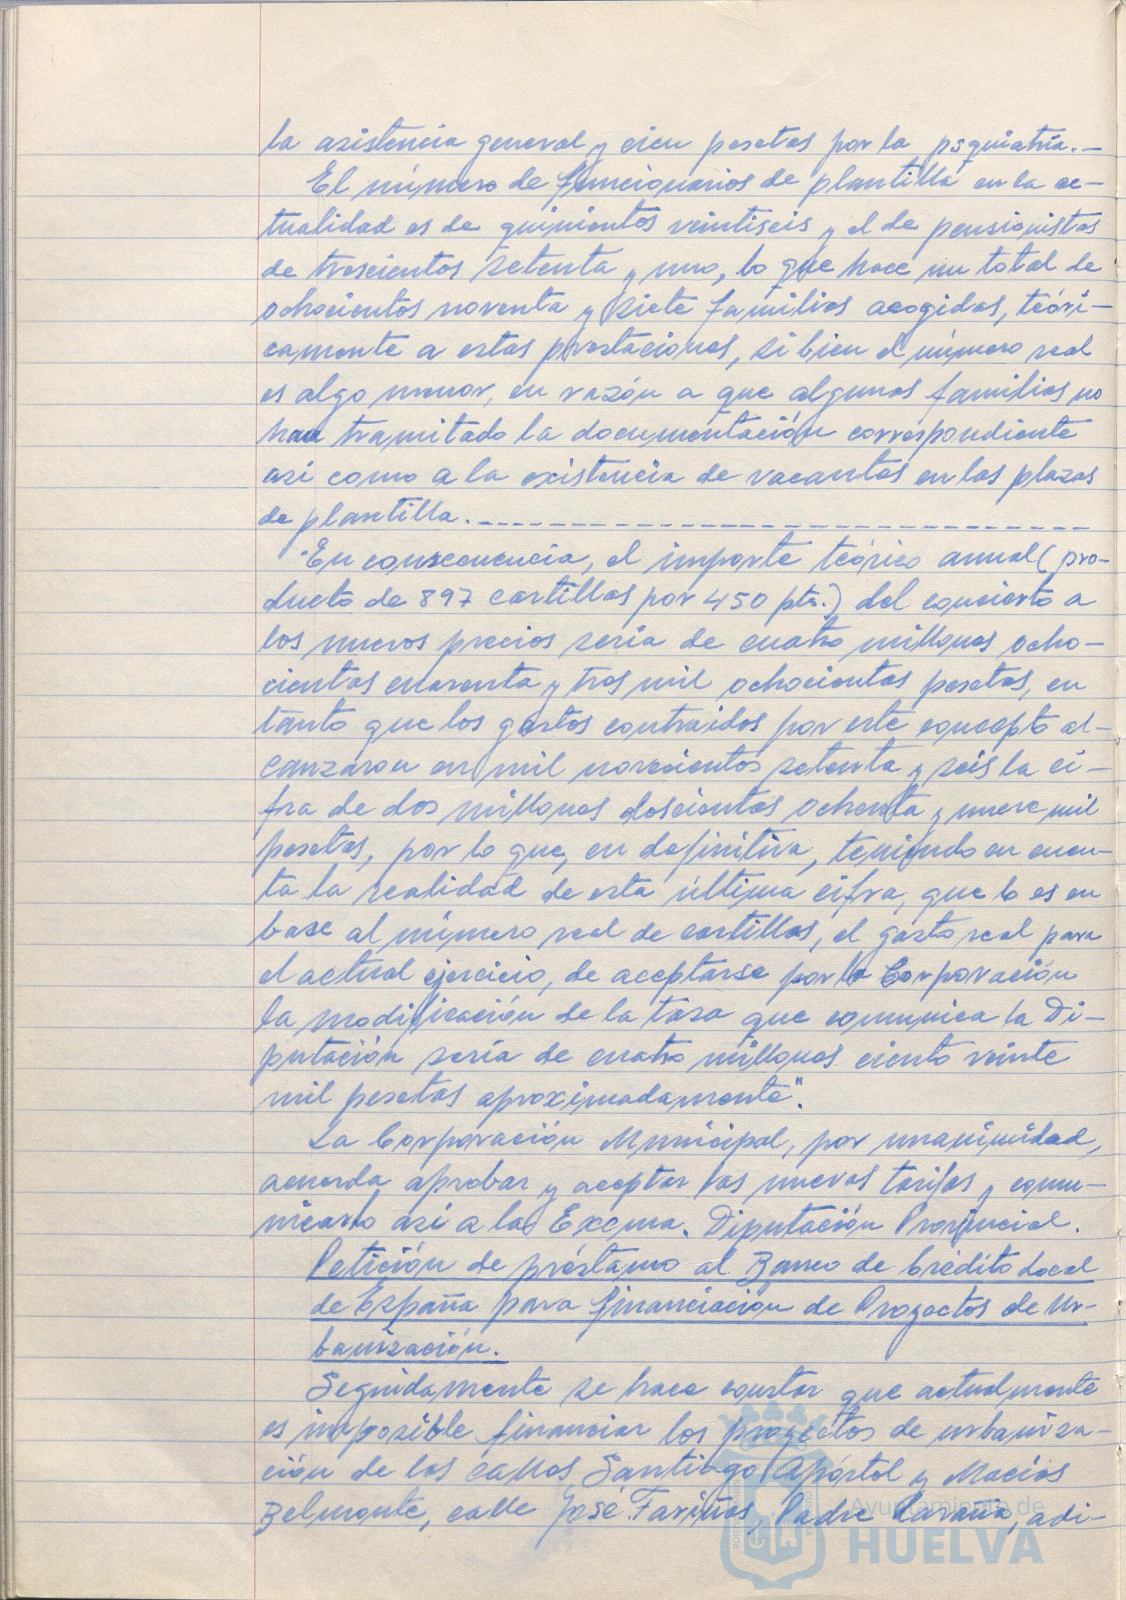 la asistencia general y cien pesetas por la psquiatría.-
El número de funcionarios de plantilla en la ac-
tualidad es de quinientos veintiseis y el de pensionistas
de trescientos setenta y uno, lo que hace un total de
ochocientos noventa y siete familias acogidas, teóri-
camente a estas prestaciones, si bien el número real
es algo menor, en razón a que algunas familias no
han tramitado la documentación correspondiente
así como a la existencia de vacantes en las plazas
de plantilla.-----------------------------
"En consecuencia, el importe teórico anual (pro-
ducto de 897 cartillas por 450 pts.) del concierto a
los nuevos precios sería de cuatro millones ocho-
cientas cuarenta y tres mil ochocientas pesetas, en
tanto que los gastos contraidos por este concepto al-
canzaron en mil novecientos setenta y seis la ci-
fra de dos millones doscientas ochenta y nueve mil
pesetas, por lo que, en definitiva, teniendo en cuen-
ta la realidad de esta última cifra, que lo es en
base al número real de cartillas, el gasto real para
el actual ejercicio, de aceptarse por la Corporación
la modificación de la tasa que comunica la Di-
putación sería de cuatro millones ciento veinte
mil pesetas aproximadamente".
La Corporación Municipal, por unanimidad,
acuerda aprobar y aceptar las nuevas tarifas y comu-
nicarlo así a la Excma. Diputación Provincial.
Petición de préstamo al Banco de Crédito Local
de España para financiación de Proyectos de Ur-
banización.
Seguidamente se hace constar que actualmente
es imposible financiar los proyectos de urbaniza-
ción de las calles Santiago Apóstol y Macías
Belmonte, calle José Fariñas, Padre Laraña, adi-
Ayuntamiento de
HUELVA